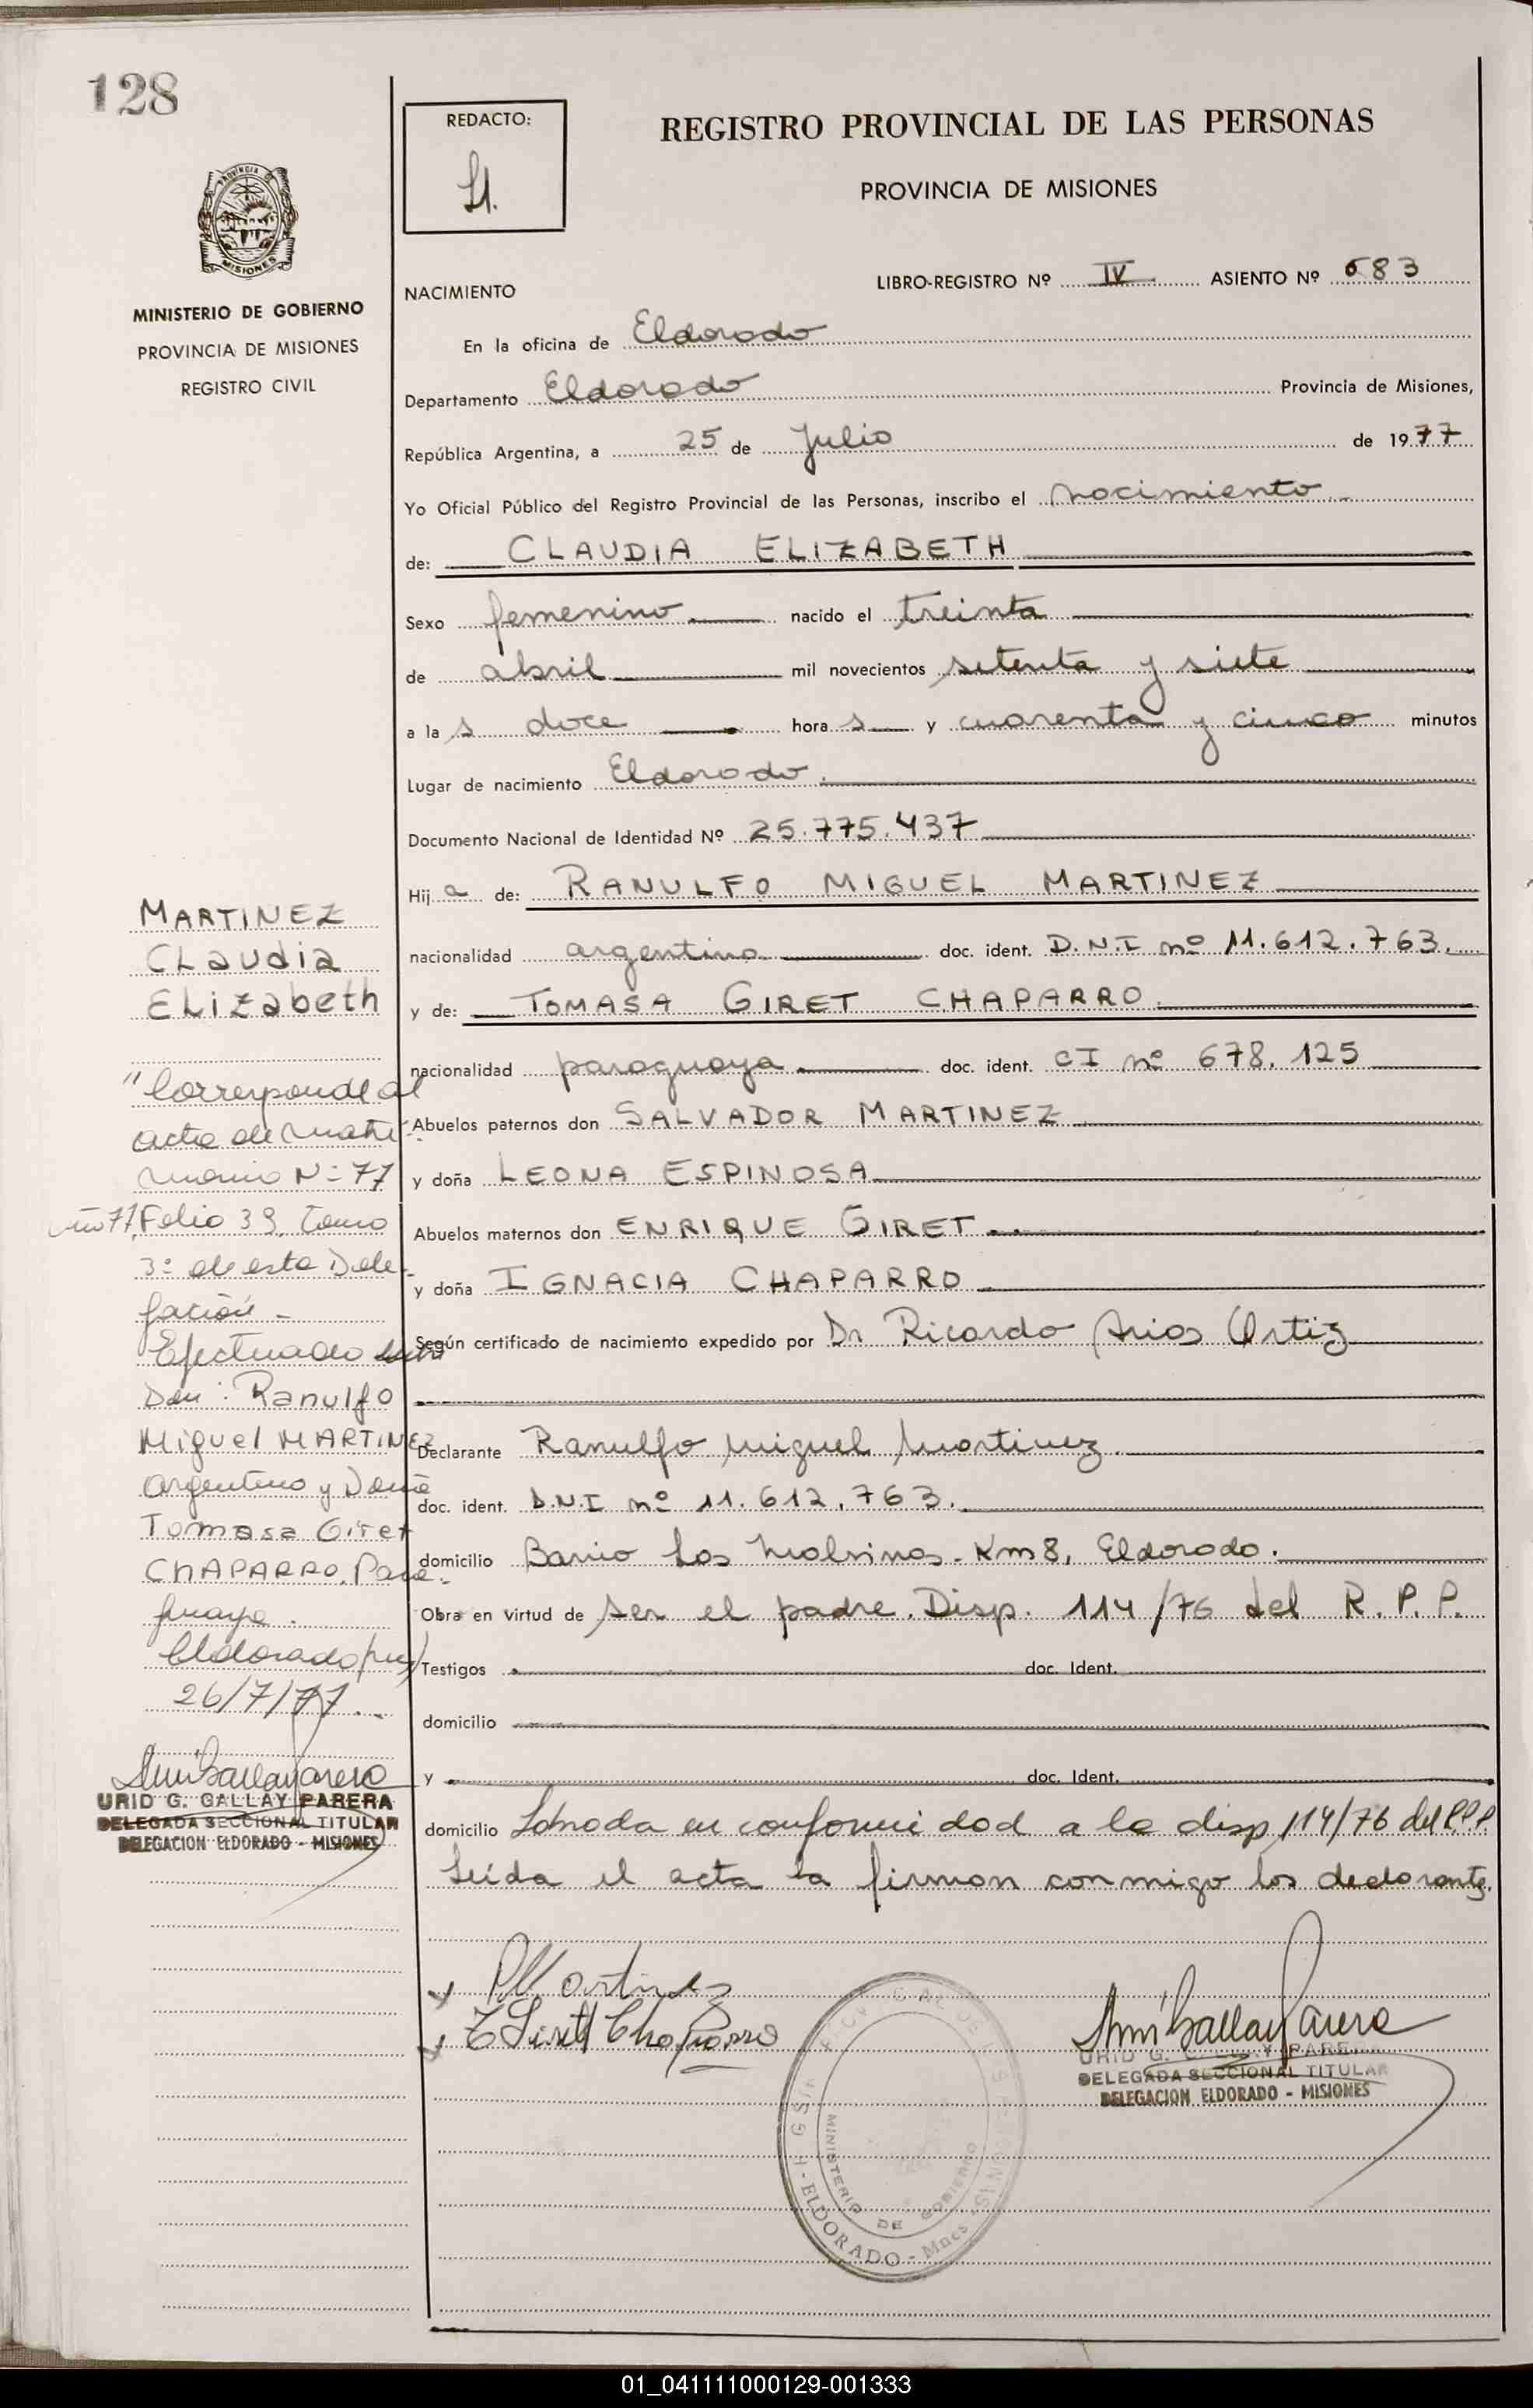 128
REDACTO:
REGISTRO PROVINCIAL DE LAS PERSONAS
PROVINCIA DE MISIONES
MISIONES
MINISTERIO DE GOBIERNO
PROVINCIA DE MISIONES
REGISTRO CIVIL
NACIMIENTO
LIBRO-REGISTRO Nº IV ASIENTO Nº 683
En la oficina de Eldorado
Departamento Eldorado Provincia de Misiones,
República Argentina, a 25 de Julio de 1977
Yo Oficial Público del Registro Provincial de las Personas, inscribo el nacimiento
de: CLAUDIA ELIZABETH
Sexo femenino nacido el treinta
de abril mil novecientos setenta y siete
a las doce horas y cuarenta y cinco minutos
Lugar de nacimiento Eldorado.
Documento Nacional de Identidad Nº 25.775.437
Hija de: RANULFO MIGUEL MARTINEZ
nacionalidad argentino doc. ident. D.N.I nº 11.612.763.
y de: TOMASA GIRET CHAPARRO.
nacionalidad paraguaya doc. ident. CI nº 678.125
Abuelos paternos don SALVADOR MARTINEZ
y doña LEONA ESPINOSA
Abuelos maternos don ENRIQUE GIRET
y doña IGNACIA CHAPARRO
Según certificado de nacimiento expedido por Dr Ricardo Arios Ortiz
Declarante Ranulfo Miguel Martinez.
doc. ident. D.N.I nº 11.612.763.
domicilio Barrio Las Malvinas. Km 8, Eldorado.
Obra en virtud de ser el padre. Disp. 114/76 del R.P.P.
Testigos doc. Ident.
domicilio
y doc. Ident.
domicilio Labrada en conformidad a la disp 114/76 del R.P.P.
Leída el acta la firman conmigo los declarantes.
MARTINEZ
Claudia
Elizabeth
"Corresponde al
acta de matri-
monio Nº 77
año 77, Folio 39, Tomo
3º de esta Dele-
gación -
Efectuado
Don: Ranulfo
Miguel MARTINEZ
argentino y Doña
Tomasa Giret
CHAPARRO, Para-
guaya.
Eldorado
26/7/77
URID G. GALLAY PARERA
DELEGADA SECCIONAL TITULAR
DELEGACION ELDORADO - MISIONES
R.M.artinez
T Giret Chaparro
URID G. GALLAY PARERA
DELEGADA SECCIONAL TITULAR
DELEGACION ELDORADO - MISIONES
MINISTERIO DE GOBIERNO
ELDORADO - Mnes
01_041111000129-001333